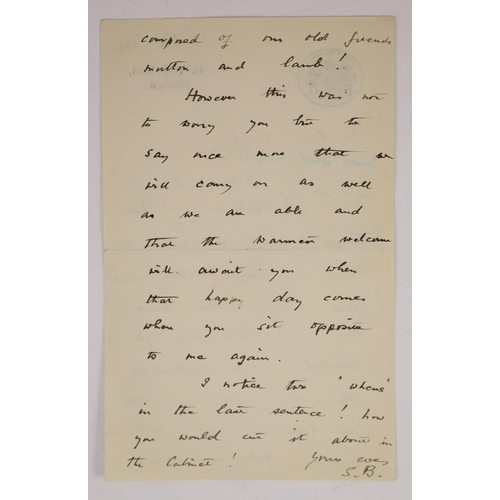 composed of our old friends
mutton and lamb!
However this was not
to worry you but to
say once more that we
will carry on as well
as we are able and
that the warmest welcome
will await you when
that happy day comes
when you sit opposite
to me again.
I notice two "whens"
in the last sentence! how
you would cut it about in
the Cabinet! Yours ever
S.B.